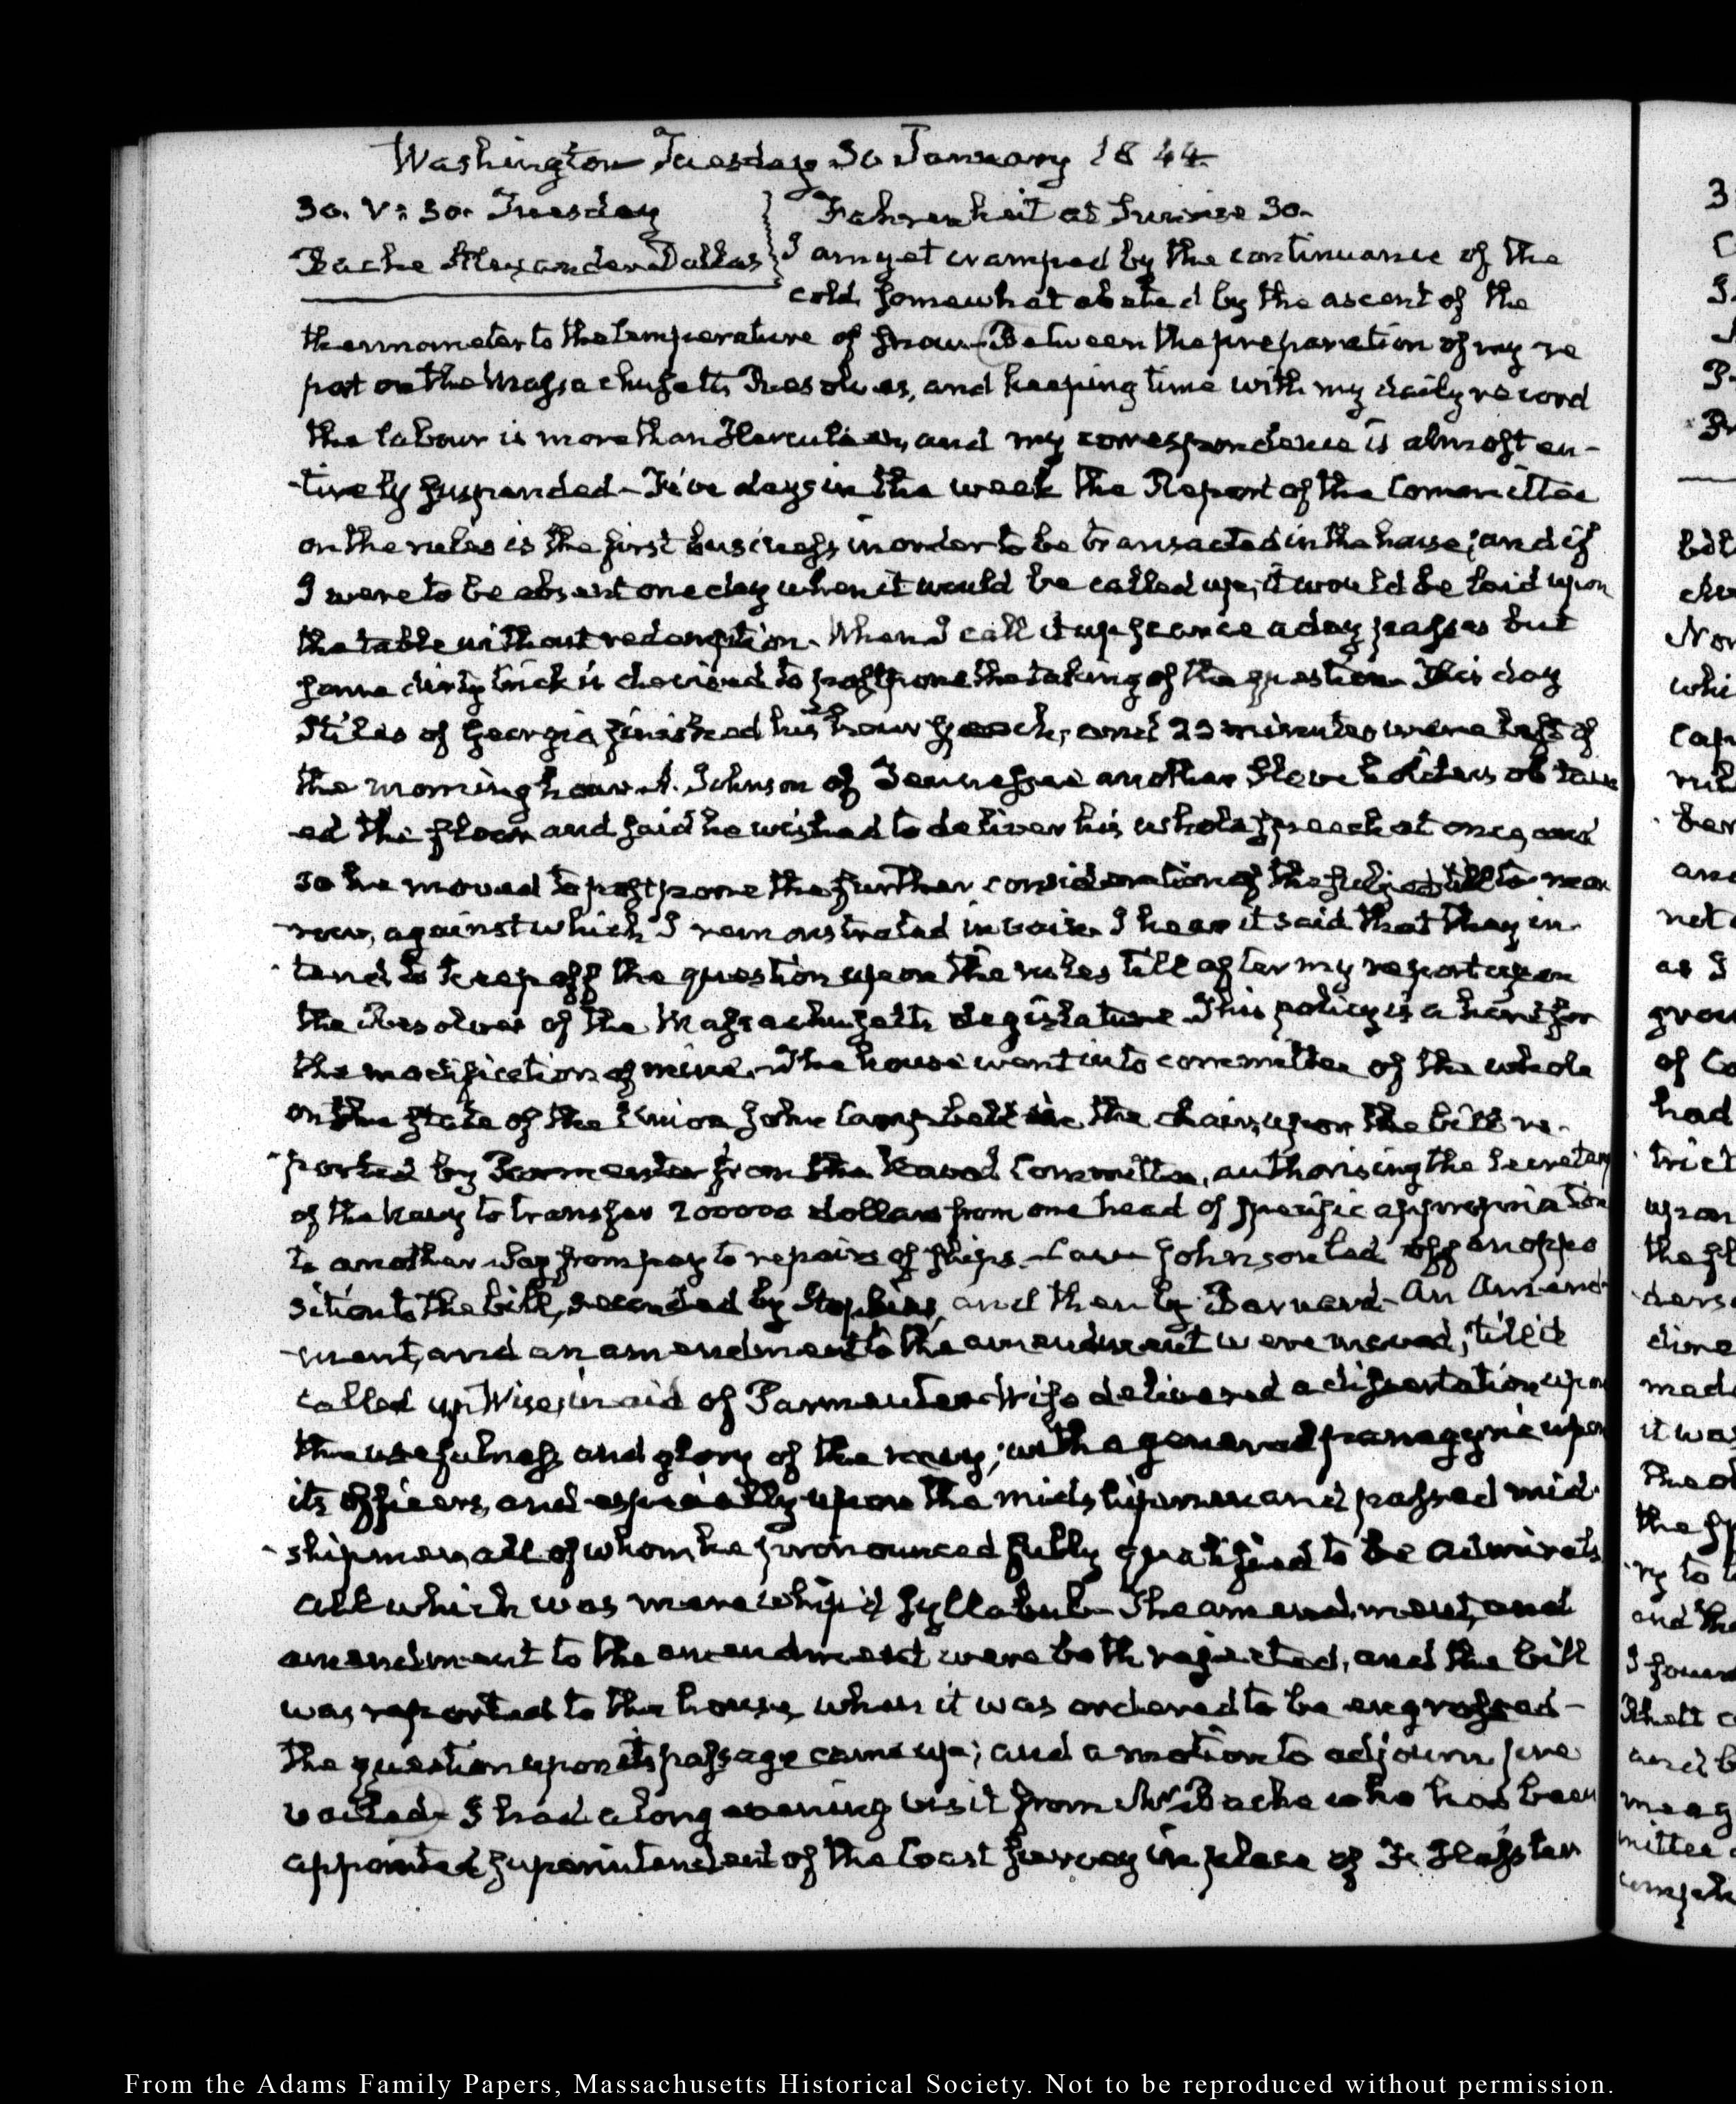 Washington Tuesday 30 January 1844
30. V: 30. Tuesday
Fahrenheit at Sunrise 30.
Bache Alexander Dallas
I am yet cramped by the continuance of the
cold, somewhat abated by the ascent of the
thermometer to the temperature of snow — Between the preparation of my re
port on the Massachusetts Resolves, and keeping time with my daily record
the labour is more than Herculean, and my correspondence is almost en-
-tirely suspended — Five days in the week the Report of the Committee
on the rules is the first business in order to be transacted in the house; and if
I were to be absent one day when it would be called up, it would be laid upon
the table without redemption. When I call it up scarce a day passes but
some dirty trick is devised to postpone the taking of the question — This day
Stiles of Georgia, finished his hour speech, and 22 minutes were left of
the morning hour. A. Johnson of Tennessee another Slave holder, obtain
ed the floor and said he wished to deliver his whole speech at once, and
so he moved to postpone the further consideration of the subject till to-mor
-row, against which I remonstrated in vain. I hear it said that they in-
-tend to keep off the question upon the rules till after my report upon
the Resolves of the Massachusetts Legislature. This policy is a hint for
the modification of mine. The house went into committee of the whole
on the state of the Union John Campbell in the chair, upon the bill re-
-ported by Parmenter from the Naval Committee, authorising the Secretary
of the Navy to transfer 200000 dollars from one head of specific appropriation
to another way from pay to repairs of ships. — Cave Johnson led off an oppo
sition to the bill, seconded by and then by Barnard — An Amend-
-ment, and an amendment to the amendment were moved, till it
called up Wise, in aid of Parmenter — Wise delivered a dissertation upon
the usefulness and glory of the navy; with a general panegyric upon
its officers, and especially upon the midshipmen and passed mid-
-shipmen, all of whom he pronounced fully qualified to be admirals
all which was mere whip'd syllabub — The amendment, and
amendment to the amendment were both rejected, and the bill
was reported to the house, when it was ordered to be engrossed —
the question upon its passage came up; and a motion to adjourn pre
vailed — I had a long evening visit from Mr. Bache who has been
appointed Superintendent of the Coast Survey in place of F. Hassler
From the Adams Family Papers, Massachusetts Historical Society. Not to be reproduced without permission.